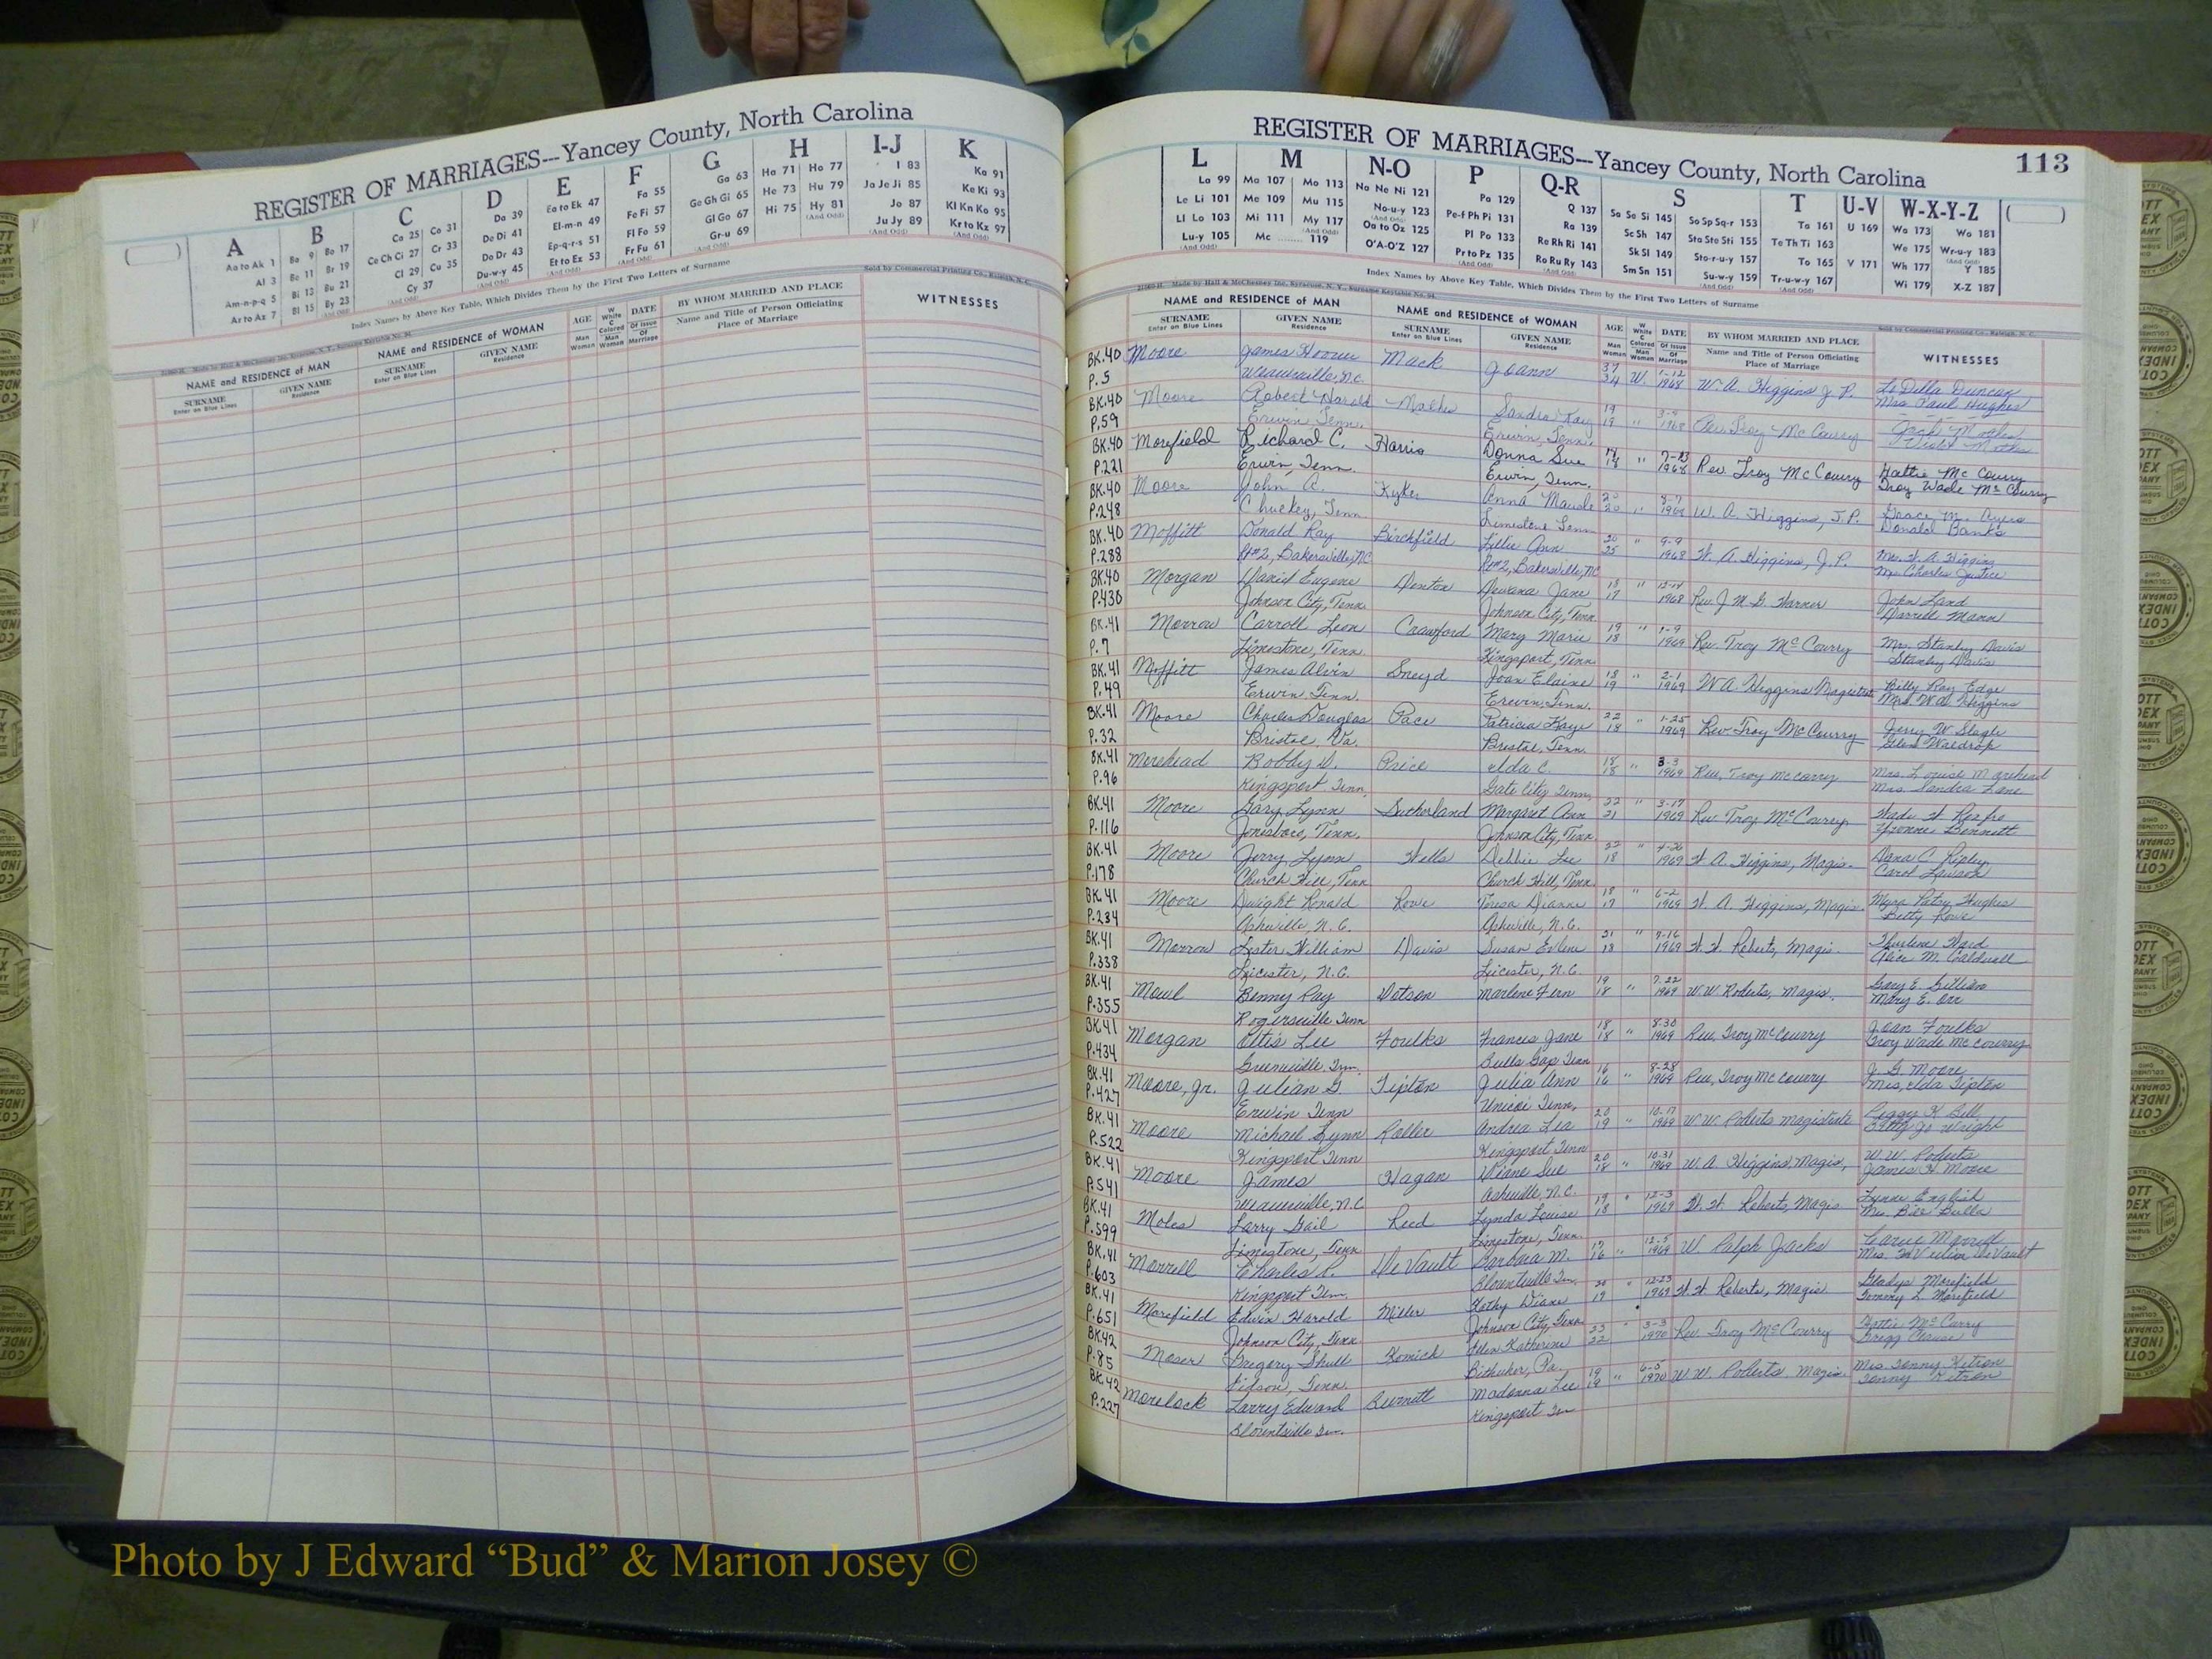 REGISTER OF MARRIAGES---Yancey County, North Carolina
A B C D E F G H I-J K
Aa to Ak 1
Al 3
Am-n-p-q 5
Ar to Az 7
Ba 9 Bo 17
Be 11 Br 19
Bi 13 Bu 21
Bl 15 By 23
Ca 25 Co 31
Ce Ch Ci 27 Cr 33
Cl 29 Cu 35
Cy 37
Da 39
De Di 41
Do Dr 43
Du-w-y 45
Ea to Ek 47
El-m-n 49
Ep-q-r-s 51
Et to Ez 53
Fa 55
Fe Fi 57
Fl Fo 59
Fr Fu 61
Ga 63
Ge Gh Gi 65
Gl Go 67
Gr-u 69
Ha 71 Ho 77
He 73 Hu 79
Hi 75 Hy 81
I 83
Ja Je Ji 85
Jo 87
Ju Jy 89
Ka 91
Ke Ki 93
Kl Kn Ko 95
Kr to Kz 97
Index Names by Above Key Table, Which Divides Them by the First Two Letters of Surname
Sold by Commercial Printing Co., Raleigh, N. C.
NAME and RESIDENCE of MAN
NAME and RESIDENCE of WOMAN
AGE
DATE
BY WHOM MARRIED AND PLACE
Name and Title of Person Officiating
Place of Marriage
WITNESSES
SURNAME
Enter on Blue Lines
GIVEN NAME
Residence
SURNAME
Enter on Blue Lines
GIVEN NAME
Residence
REGISTER OF MARRIAGES---Yancey County, North Carolina
113
L M N-O P Q-R S T U-V W-X-Y-Z
La 99
Le Li 101
Ll Lo 103
Lu-y 105
Ma 107 Mo 113
Me 109 Mu 115
Mi 111 My 117
Mc 119
Na Ne Ni 121
No-u-y 123
Oa to Oz 125
O'A-O'Z 127
Pa 129
Pe-f Ph Pi 131
Pl Po 133
Pr to Pz 135
Q 137
Ra 139
Re Rh Ri 141
Ro Ru Ry 143
Sa Se Si 145 So Sp Sq-r 153
Sc Sh 147 Sta Ste Sti 155
Sk Sl 149 Sto-r-u-y 157
Sm Sn 151 Su-w-y 159
Ta 161
Te Th Ti 163
To 165
Tr-u-w-y 167
U 169
V 171
Wa 173 Wo 181
We 175 Wr-u-y 183
Wh 177 Y 185
Wi 179 X-Z 187
Index Names by Above Key Table, Which Divides Them by the First Two Letters of Surname
NAME and RESIDENCE of MAN
NAME and RESIDENCE of WOMAN
AGE
DATE
BY WHOM MARRIED AND PLACE
Name and Title of Person Officiating
Place of Marriage
WITNESSES
SURNAME
Enter on Blue Lines
GIVEN NAME
Residence
SURNAME
Enter on Blue Lines
GIVEN NAME
Residence
BK.40 Moore James Hoover Mack Joann 37 W. 1-12 W. A. Higgins J. P. Duncan
P.5 Weaverville, N.C. 34 1968 Mrs. Paul Hughes
BK.40 Moore Robert Harold Sandra Kay 19 " Rev. Troy McCourry
P.59 Erwin, Tenn. Erwin, Tenn. 19 1968
BK.40 Morefield Richard C. Harris Donna Sue " Rev. Troy McCourry Hattie McCourry
P.221 Erwin, Tenn. Erwin, Tenn. 18 1968 Troy Wade McCourry
BK.40 Moore John A. Kyker Anna Maude 20 " W. A. Higgins, J.P. Grace M. Ayers
P.248 Chuckey, Tenn. Limestone Tenn. 20 1968 Donald Banks
BK.40 Moffitt Donald Ray Birchfield Lillie Ann 20 " 9-9 W. A. Higgins, J.P. Mrs. W. A. Higgins
P.288 Rt#2, Bakersville, NC Rt#2, Bakersville, NC 25 1968 Mrs. Charles Justice
BK.40 Morgan David Eugene Denton Jane 18 " 12-14 Rev. J. M. B. Warner John Land
P.430 Johnson City, Tenn. Johnson City, Tenn. 17 1968 Darrell Mann
BK.41 Morrow Carroll Leon Crawford Mary Marie 19 " 1-9 Rev. Troy McCourry Mrs. Stanley Davis
P.7 Limestone, Tenn. Kingsport, Tenn. 18 1969 Stanley Davis
BK.41 Moffitt James Alvin Sneyd Joan Elaine 18 " 2-1 W.A. Higgins Magistrate Billy Ray Edge
P.49 Erwin, Tenn. Erwin, Tenn. 19 1969 Mrs. W.A. Higgins
BK.41 Moore Charles Douglas Pace Patricia Kaye 22 " 1-25 Rev. Troy McCourry Jerry W. Slagle
P.32 Bristol, Va. Bristol, Tenn. 18 1969 Glen Wardrop
BK.41 Morehead Bobby D. Price Elda C. 18 " 3-3 Rev. Troy McCourry Mrs. Louise Morehead
P.96 Kingsport Tenn. Gate City 18 1969 Mrs. Sandra Lane
BK.41 Moore Gary Lynn Sutherland Margaret Ann 22 " 3-17 Rev. Troy McCourry Wade H. Renfro
P.116 Jonesboro, Tenn. Johnson City, Tenn. 21 1969 Yvonne Bennett
BK.41 Moore Jerry Lynn Wells Debbie Lee 22 " 4-26 W. A. Higgins, Magis. Dana C. Ripley
P.178 Church Hill, Tenn. Church Hill, Tenn. 18 1969 Carol Lawson
BK.41 Moore Dwight Ronald Rowe Teresa Dianne 18 " 6-2 W. A. Higgins, Magis. Patsy Hughes
P.234 Asheville, N.C. Asheville, N.C. 17 1969 Betty Rowe
BK.41 Morrow Lester William Davis Susan Evlene 21 " 7-16 W. W. Roberts, Magis. Ward
P.338 Leicester, N.C. Leicester, N.C. 18 1969 Alice M. Caldwell
BK.41 Mowl Benny Ray Dotson Marlene Fern 19 " 7-22 W.W. Roberts, Magis. Gary E. Gillian
P.355 Rogersville Tenn 18 1969 Mary E. Orr
BK.41 Morgan Ottis Lee Foulks Frances Jane 18 " 8-30 Rev. Troy McCourry Joan Foulks
P.434 Greeneville, Tenn. Bulls Gap Tenn 18 1969 Troy Wade McCourry
BK.41 Moore, Jr. Julian G. Tipton Julia Ann 16 " 8-28 Rev. Troy McCourry J. G. Moore
P.427 Erwin Tenn Unicoi Tenn. 16 1969 Mrs. Elda Tipton
BK.41 Moore Michael Lynn Roller Andrea Lea 20 " 10-17 W.W. Roberts magistrate Peggy K. Bell
P.522 Kingsport Tenn Kingsport Tenn 19 1969 Betty Jo Wright
BK.41 Moore James Hagan Diane Sue 20 " 10-31 W.A. Higgins Magis. W.W. Roberts
P.541 Weaverville, N.C. Asheville, N.C. 18 1969 James H. Moore
BK.41 Moles Larry Gail Reed Lynda Louise 19 " 12-3 W. W. Roberts, Magis Lynne English
P.599 Limestone, Tenn Limestone, Tenn. 18 1969 Mrs. Bill Bulla
BK.41 Morrell Charles R. DeVault Barbara M. 17 " 12-5 W. Ralph Jacks
P.603 Kingsport Tenn. Blountville Tenn. 16 1969 DeVault
BK.41 Morefield Edwin Harold Miller Kathy Diane 20 " 12-23 W. W. Roberts, Magis Gladys Morefield
P.651 Johnson City, Tenn. Johnson City, Tenn. 19 1969 Tommy L. Morefield
BK.42 Moser Gregory Shull Romich Ellen Katherine 23 " 3-3 Rev. Troy McCourry Hattie McCourry
P.85 Tenn. Pa. 22 1970
BK.42 Morelock Larry Edward Burnett Madonna Lee 19 " 6-5 W.W. Roberts Magis. Mrs. Tenny Ketron
P.227 Blountville Tenn. Kingsport Tenn 19 1970 Tenny Ketron
Photo by J Edward “Bud” & Marion Josey ©